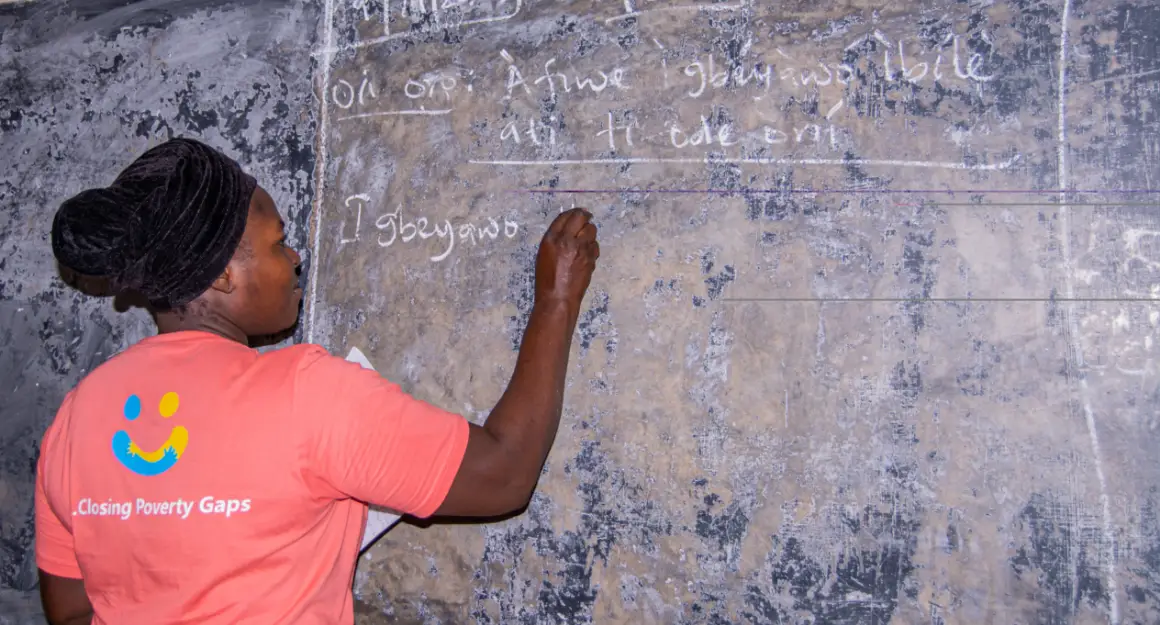 orí ọ̀rọ̀: Àfiwé ìgbeyàwó ìbílẹ̀
àti ti òde òní
Ìgbeyàwó
..Closing Poverty Gaps